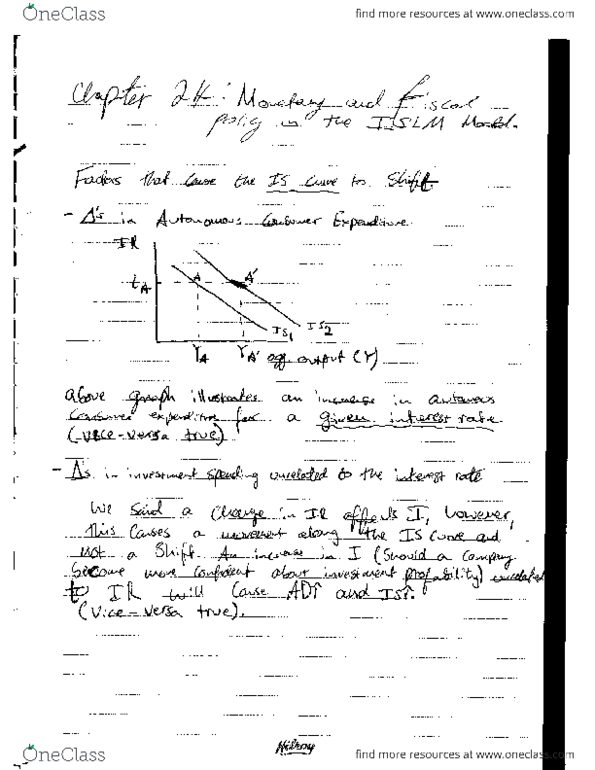 OneClass
find more resources at www.oneclass.com
Chapter 24: Monetary and Fiscal
policy in the ISLM Model.
Factors that cause the IS curve to Shift
- Δ's in Autonomous Consumer Expenditure
IR
A A'
iA
IS1 IS2
YA YA' agg. output (Y)
Above graph illustrates an increase in autonomous
consumer expenditure for a given interest rate
(-vice-versa true)
- Δ's in investment spending unrelated to the interest rate
We said a change in IR affects I, however,
this causes a movement along the IS curve and
not a Shift. An increase in I (Should a company
become more confident about investment profability) unrelated
to IR will cause AD↑ and IS↑.
(Vice-versa true).
Hilroy
OneClass
find more resources at www.oneclass.com